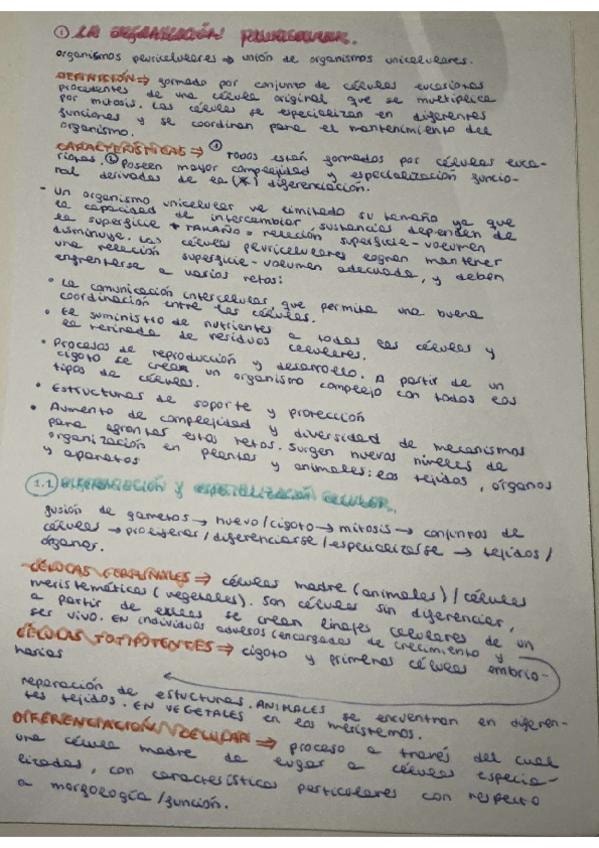 ① LA ORGANIZACIÓN PLURICELULAR.
organismos pluricelulares → unión de organismos unicelulares.
DEFINICIÓN ⇒ formado por conjunto de células eucariotas
procedentes de una célula original que se multiplica
por mitosis. Las células se especializan en diferentes
funciones y se coordinan para el mantenimiento del
organismo.
CARACTERÍSTICAS ⇒ ① Todos están formados por células euca-
riotas. ② Poseen mayor complejidad y especialización funcio-
nal derivadas de la (*) diferenciación.
- Un organismo unicelular ve limitado su tamaño ya que
la capacidad de intercambiar sustancias depende de
la superficie + TAMAÑO = relación superficie-volumen
disminuye. Las células pluricelulares logran mantener
una relación superficie-volumen adecuada, y deben
enfrentarse a varios retos:
• La comunicación intercelular que permita una buena
coordinación entre las células.
• El suministro de nutrientes a todas las células y
la retirada de residuos celulares.
• Procesos de reproducción y desarrollo. A partir de un
cigoto se crean un organismo complejo con todos los
tipos de células.
• Estructuras de soporte y protección
• Aumento de complejidad y diversidad de mecanismos
para afrontar estos retos. Surgen nuevos niveles de
organización en plantas y animales: los tejidos, órganos
y aparatos
1.1 DIFERENCIACIÓN Y ESPECIALIZACIÓN CELULAR.
fusión de gametos → huevo/cigoto → mitosis → conjuntos de
células → proliferar/diferenciarse/especializarse → tejidos/
órganos.
CÉLULAS GERMINALES ⇒ células madre (animales) / células
meristemáticas (vegetales). Son células sin diferenciar,
a partir de ellas se crean linajes celulares de un
ser vivo. En individuos adultos encargadas de crecimiento y
CÉLULAS TOTIPOTENTES ⇒ cigoto y primeras células embrio-
narias
reparación de estucturas. ANIMALES se encuentran en diferen-
tes tejidos. EN VEGETALES en los meristemos.
DIFERENCIACIÓN CELULAR ⇒ proceso a través del cual
una célula madre da lugar a células especia-
lizadas, con características particulares con respecto
a morfología/función.